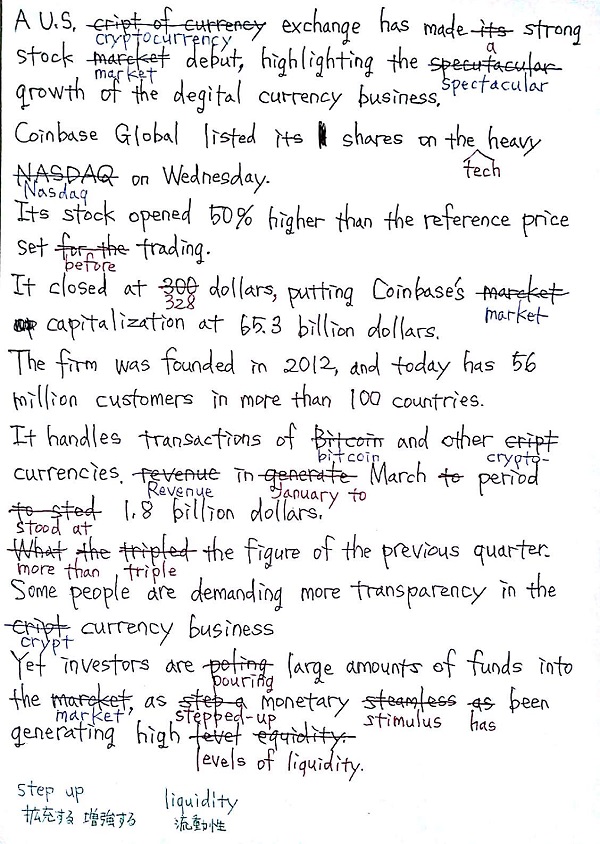 A U.S. cript of currency exchange has made its strong
cryptocurrency a
stock marcket debut, highlighting the specutacular
market spectacular
growth of the degital currency business.
Coinbase Global listed its shares on the heavy
tech
NASDAQ on Wednesday.
Nasdaq
Its stock opened 50% higher than the reference price
set for the trading.
before
It closed at 300 dollars, putting Coinbase's marcket
328 market
capitalization at 65.3 billion dollars.
The firm was founded in 2012, and today has 56
million customers in more than 100 countries.
It handles transactions of Bitcoin and other cript
bitcoin crypto-
currencies. revenue in generate March to period
Revenue January to
to sted 1.8 billion dollars.
stood at
What the tripled the figure of the previous quarter.
more than triple
Some people are demanding more transparency in the
cript currency business
crypt
Yet investors are poling large amounts of funds into
pouring
the marcket, as step a monetary steamless as been
market, stepped-up stimulus has
generating high level equidity.
levels of liquidity.
step up liquidity
拡充する 増強する 流動性